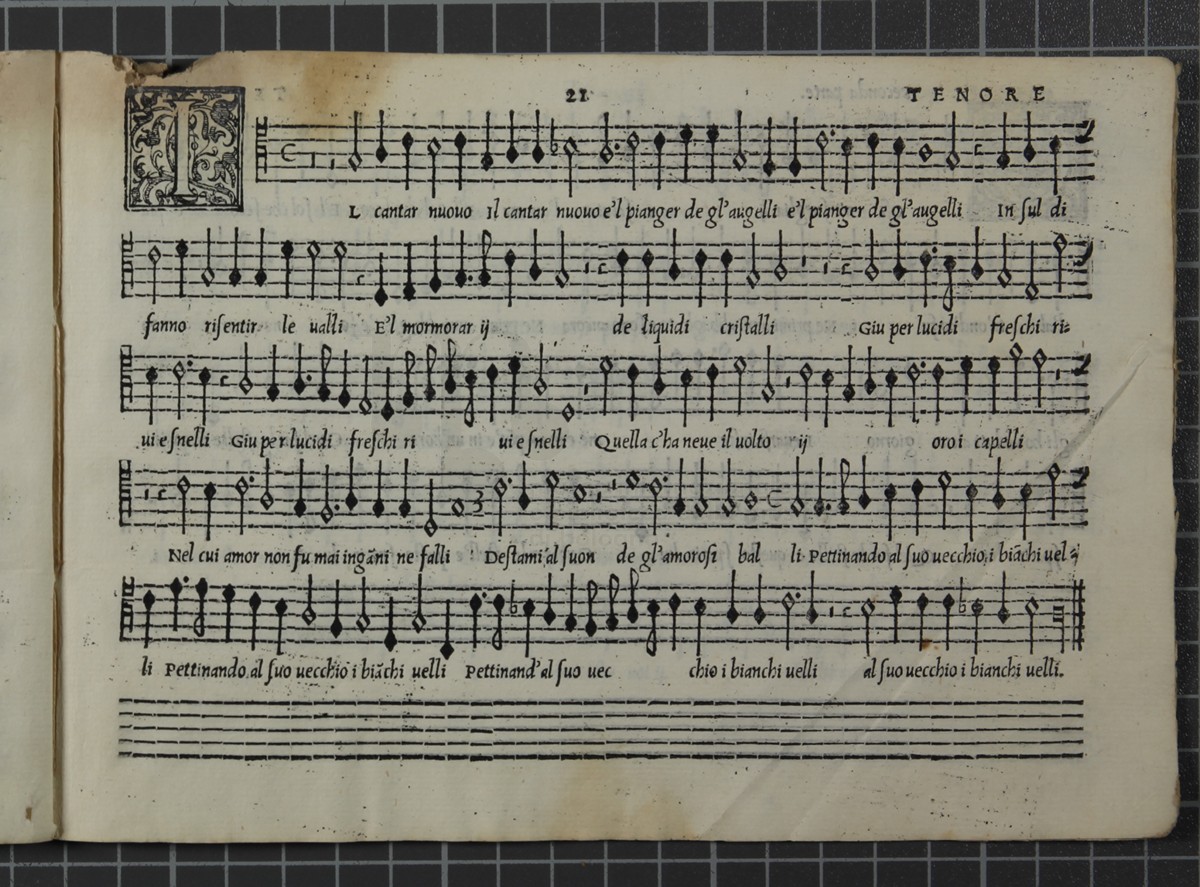 21 TENORE
IL cantar nuouo Il cantar nuouo e'l pianger de gl'augelli e'l pianger de gl'augelli In ſul di
fanno riſentir le ualli E'l mormorar ij de liquidi criſtalli Giu per lucidi freſchi ri=
ui e ſnelli Giu per lucidi freſchi ri ui e ſnelli Quella c'ha neue il uolto ij oro i capelli
Nel cui amor non fu mai ingãni ne falli Deſtami al ſuon de gl'amoroſi bal li Pettinando al ſuo uecchio i biãchi uel=
li Pettinando al ſuo uecchio i biãchi uelli Pettinand'al ſuo uec chio i bianchi uelli al ſuo uecchio i bianchi uelli.